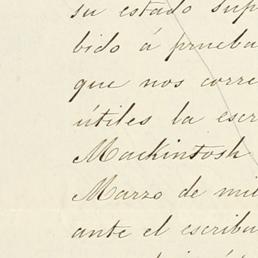 su estado sup
bido á prueba
que nos corre
útiles la escr
Mackintosh
Marzo de mil
ante el escriba